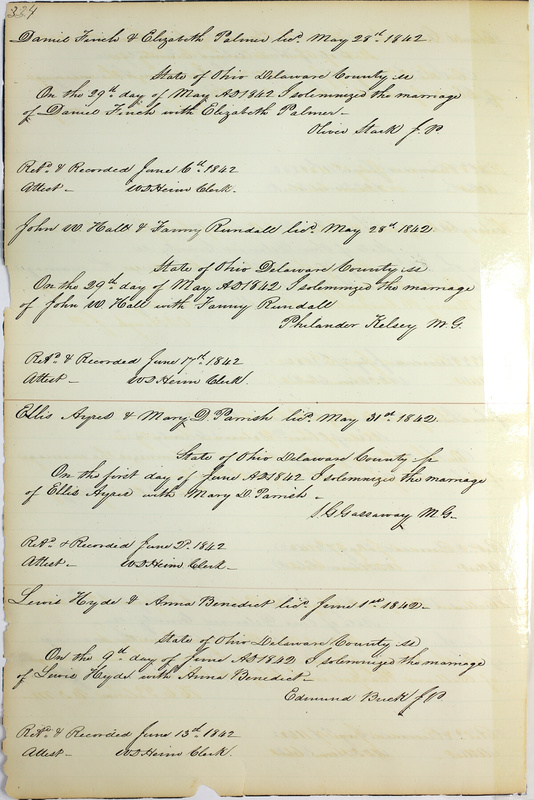 324
Daniel Finch & Elizabeth Palmer licd. May 28th 1842
State of Ohio Delaware County ss
On the 29th day of May AD1842 I solemnized the marriage
of Daniel Finch with Elizabeth Palmer_
Oliver Stark J.P.
Retd. & Recorded June 6th 1842
Attest_ W.D. Heim Clerk_
John W. Hall & Fanny Rundall licd. May 28th 1842
State of Ohio Delaware County ss
On the 29th day of May AD1842 I solemnized the marriage
of John W Hall with Fanny Rundall
Philander Kelsey M.G.
Retd. & Recorded June 17th 1842
Attest_ W.D. Heim Clerk.
Ellis Ayres & Mary D. Parrish licd. May 31st 1842
State of Ohio Delaware County ss
On the first day of June AD1842 I solemnized the marriage
of Ellis Ayres with Mary D. Parrish_
Gassaway M.G_
Retd. & Recorded June 1842
Attest_ W.D. Heim Clerk_
Lewis Hyde & Anna Benedict licd. June 1st 1842_
State of Ohio Delaware County ss
On the 9th day of June AD1842 I solemnized the marriage
of Lewis Hyde with Anna Benedict_
Edmund Buck J.P.
Retd. & Recorded June 13th 1842
Attest_ W.D. Heim Clerk.